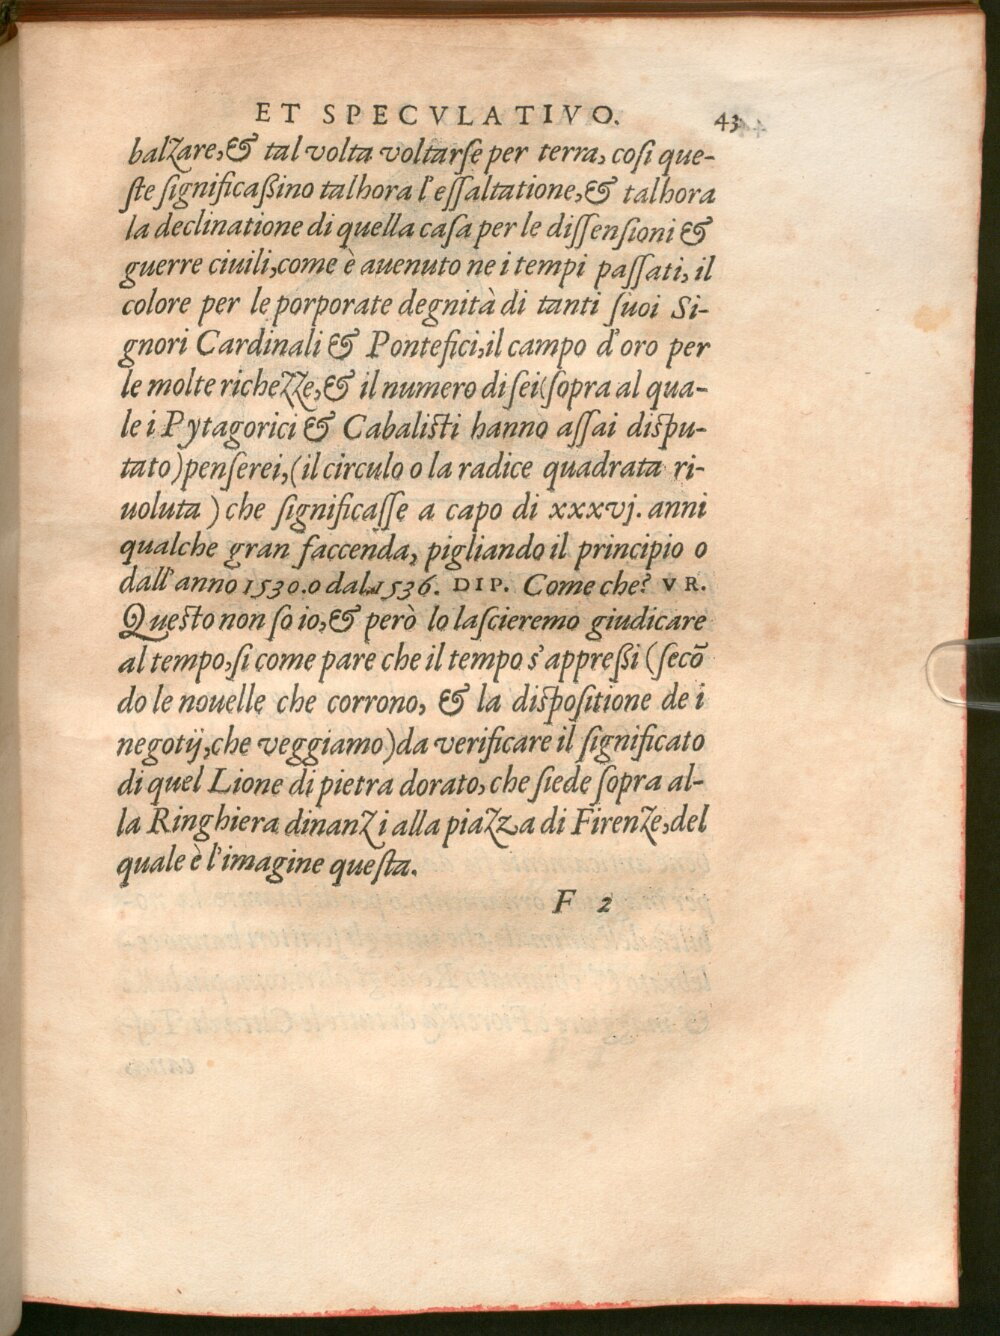 ET SPECVLATIVO. 43
balzare,& tal volta voltarſe per terra, coſi que-
ſte ſignificaßino talhora l'eſſaltatione,& talhora
la declinatione di quella caſa per le diſſenſioni &
guerre ciuili,come è auenuto ne i tempi paſſati, il
colore per le porporate degnità di tanti ſuoi Si-
gnori Cardinali & Pontefici,il campo d'oro per
le molte richezze,& il numero di ſei(ſopra al qua-
le i Pytagorici & Cabaliſti hanno aſſai diſpu-
tato)penſerei,(il circulo o la radice quadrata ri-
uoluta ) che ſignificaſſe a capo di xxxvj. anni
qualche gran faccenda, pigliando il principio o
dall'anno 1530.o dal 1536. DIP. Come che? VR.
Queſto non ſo io,& però lo laſcieremo giudicare
al tempo,ſi come pare che il tempo s'appreßi (ſecō
do le nouelle che corrono, & la diſpoſitione de i
negotij,che veggiamo)da verificare il ſignificato
di quel Lione di pietra dorato, che ſiede ſopra al-
la Ringhiera dinanzi alla piazza di Firenze,del
quale è l'imagine queſta.
F 2